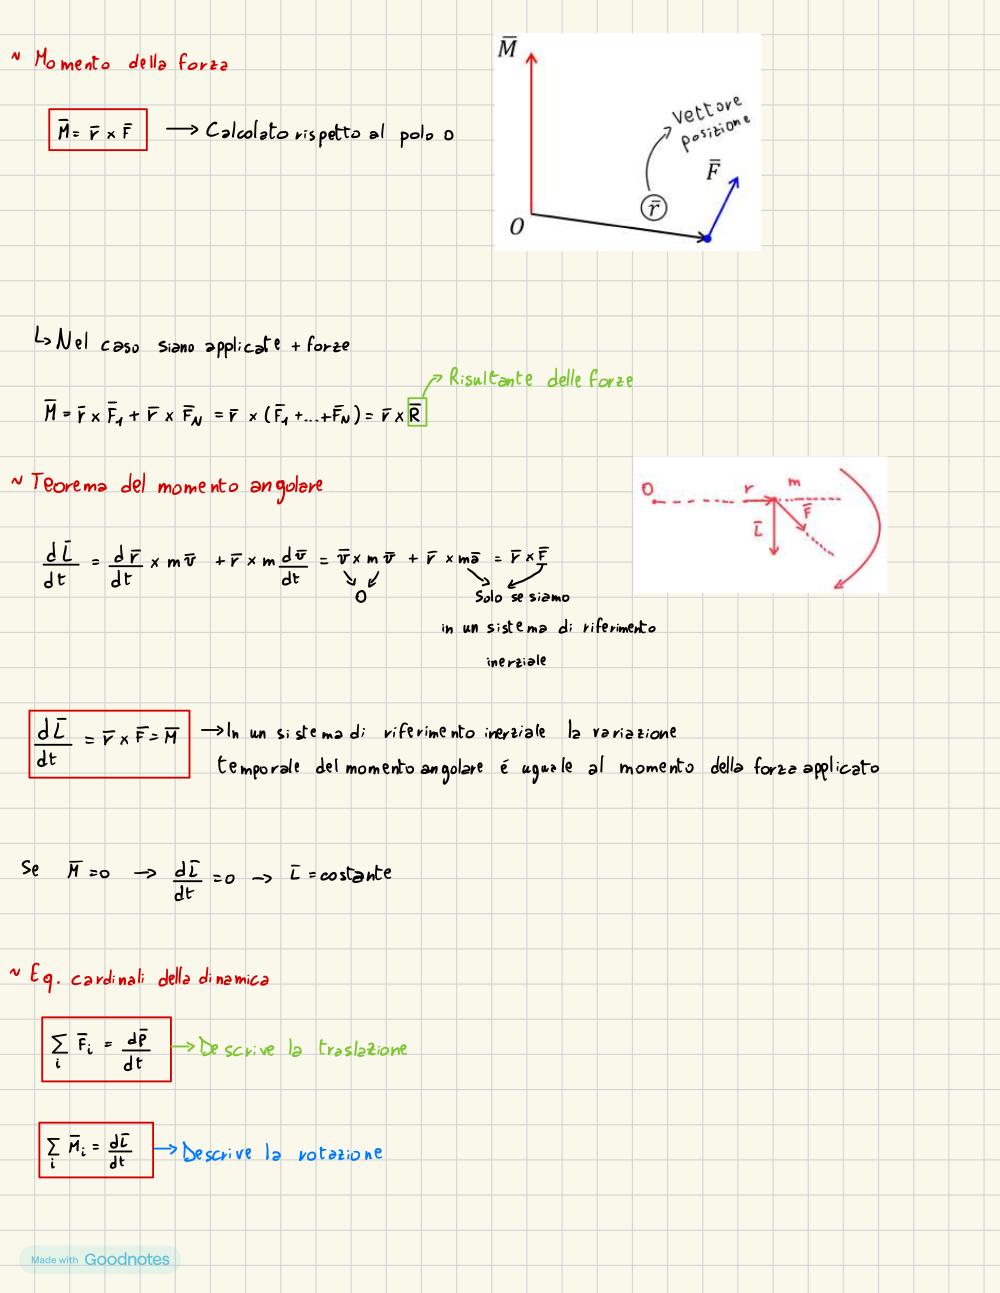 ~ Momento della forza
M̅ = r̅ × F̅ → Calcolato rispetto al polo O
M̅
vettore
posizione
F̅
r̅
O
↳ Nel caso siano applicate + forze
→ Risultante delle forze
M̅ = r̅ × F̅₁ + r̅ × F̅_N = r̅ × (F̅₁ + ... + F̅_N) = r̅ × R̅
~ Teorema del momento angolare
O r m
F̅
L̅
dL̅/dt = dr̅/dt × m v̅ + r̅ × m dv̅/dt = v̅ × m v̅ + r̅ × m a̅ = r̅ × F̅
0 Solo se siamo
in un sistema di riferimento
inerziale
dL̅/dt = r̅ × F̅ = M̅ → In un sistema di riferimento inerziale la variazione
temporale del momento angolare é uguale al momento della forza applicato
Se M̅ = 0 → dL̅/dt = 0 → L̅ = costante
~ Eq. cardinali della dinamica
∑ᵢ F̅ᵢ = dp̅/dt → Descrive la traslazione
∑ᵢ M̅ᵢ = dL̅/dt → Descrive la rotazione
Made with Goodnotes